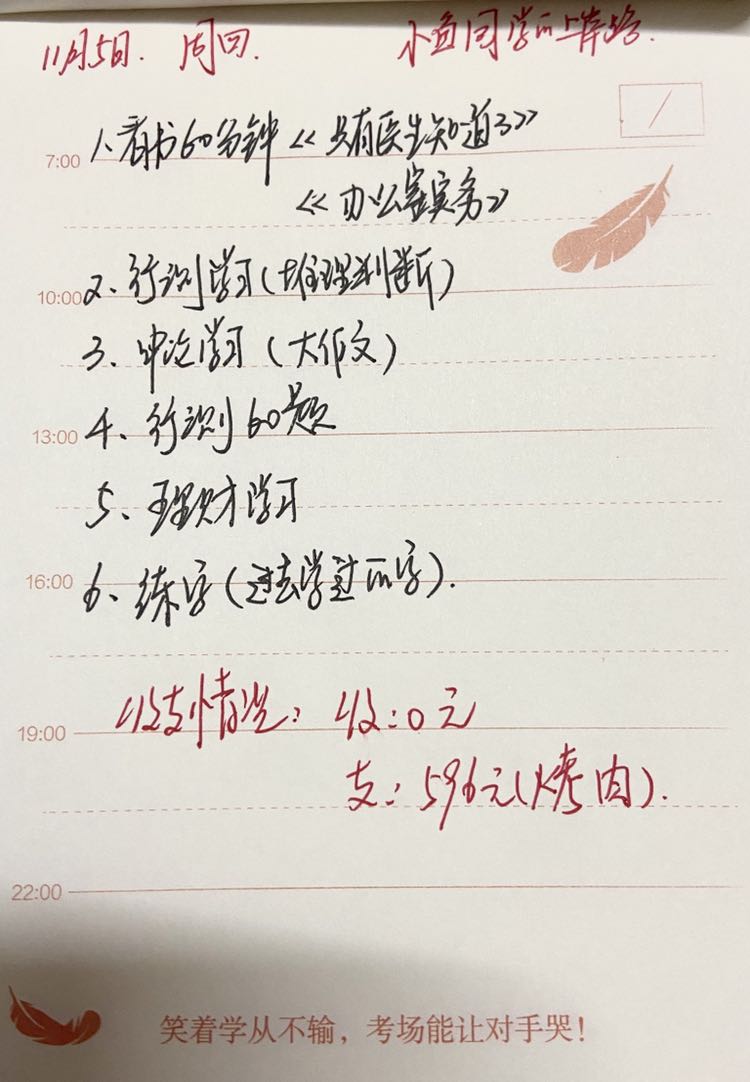 11月5日. 周四. 小鱼同学的上岸路.
1、看书60分钟《只有医生知道3》
7:00
《办公室实务》
10:00
2、行测学习(推理判断)
3、申论学习(大作文)
13:00
4、行测60题
5、理财学习
16:00
6、练字(过去学过的字).
收支情况: 收:0元
19:00
支: 596元(烤肉).
22:00
笑着学从不输，考场能让对手哭！